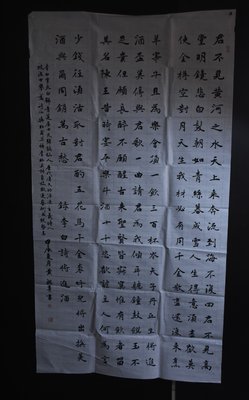 君不見河之水天上來奔流到海不復回君不見高
堂明鏡悲白髮朝如青絲暮成雪人生得意須盡歡莫
使金樽空對月天生我材必有用千金散盡還復來烹
羊宰牛且為樂會須一飲三百杯岑夫子丹丘生將進
酒盃莫停與君歌一曲請君為我傾耳聽鐘鼓饌玉不
足貴但願長醉不願醒古來聖賢皆寂寞惟有飲者留
其名陳王昔時宴平樂斗酒十千恣歡謔主人何為言
少錢徑須沽取對君酌五花馬千金裘呼兒將出換美
酒與爾同銷萬古愁 錄李白詩將進酒
李白字太白號青蓮居士
甲辰夏月黃書